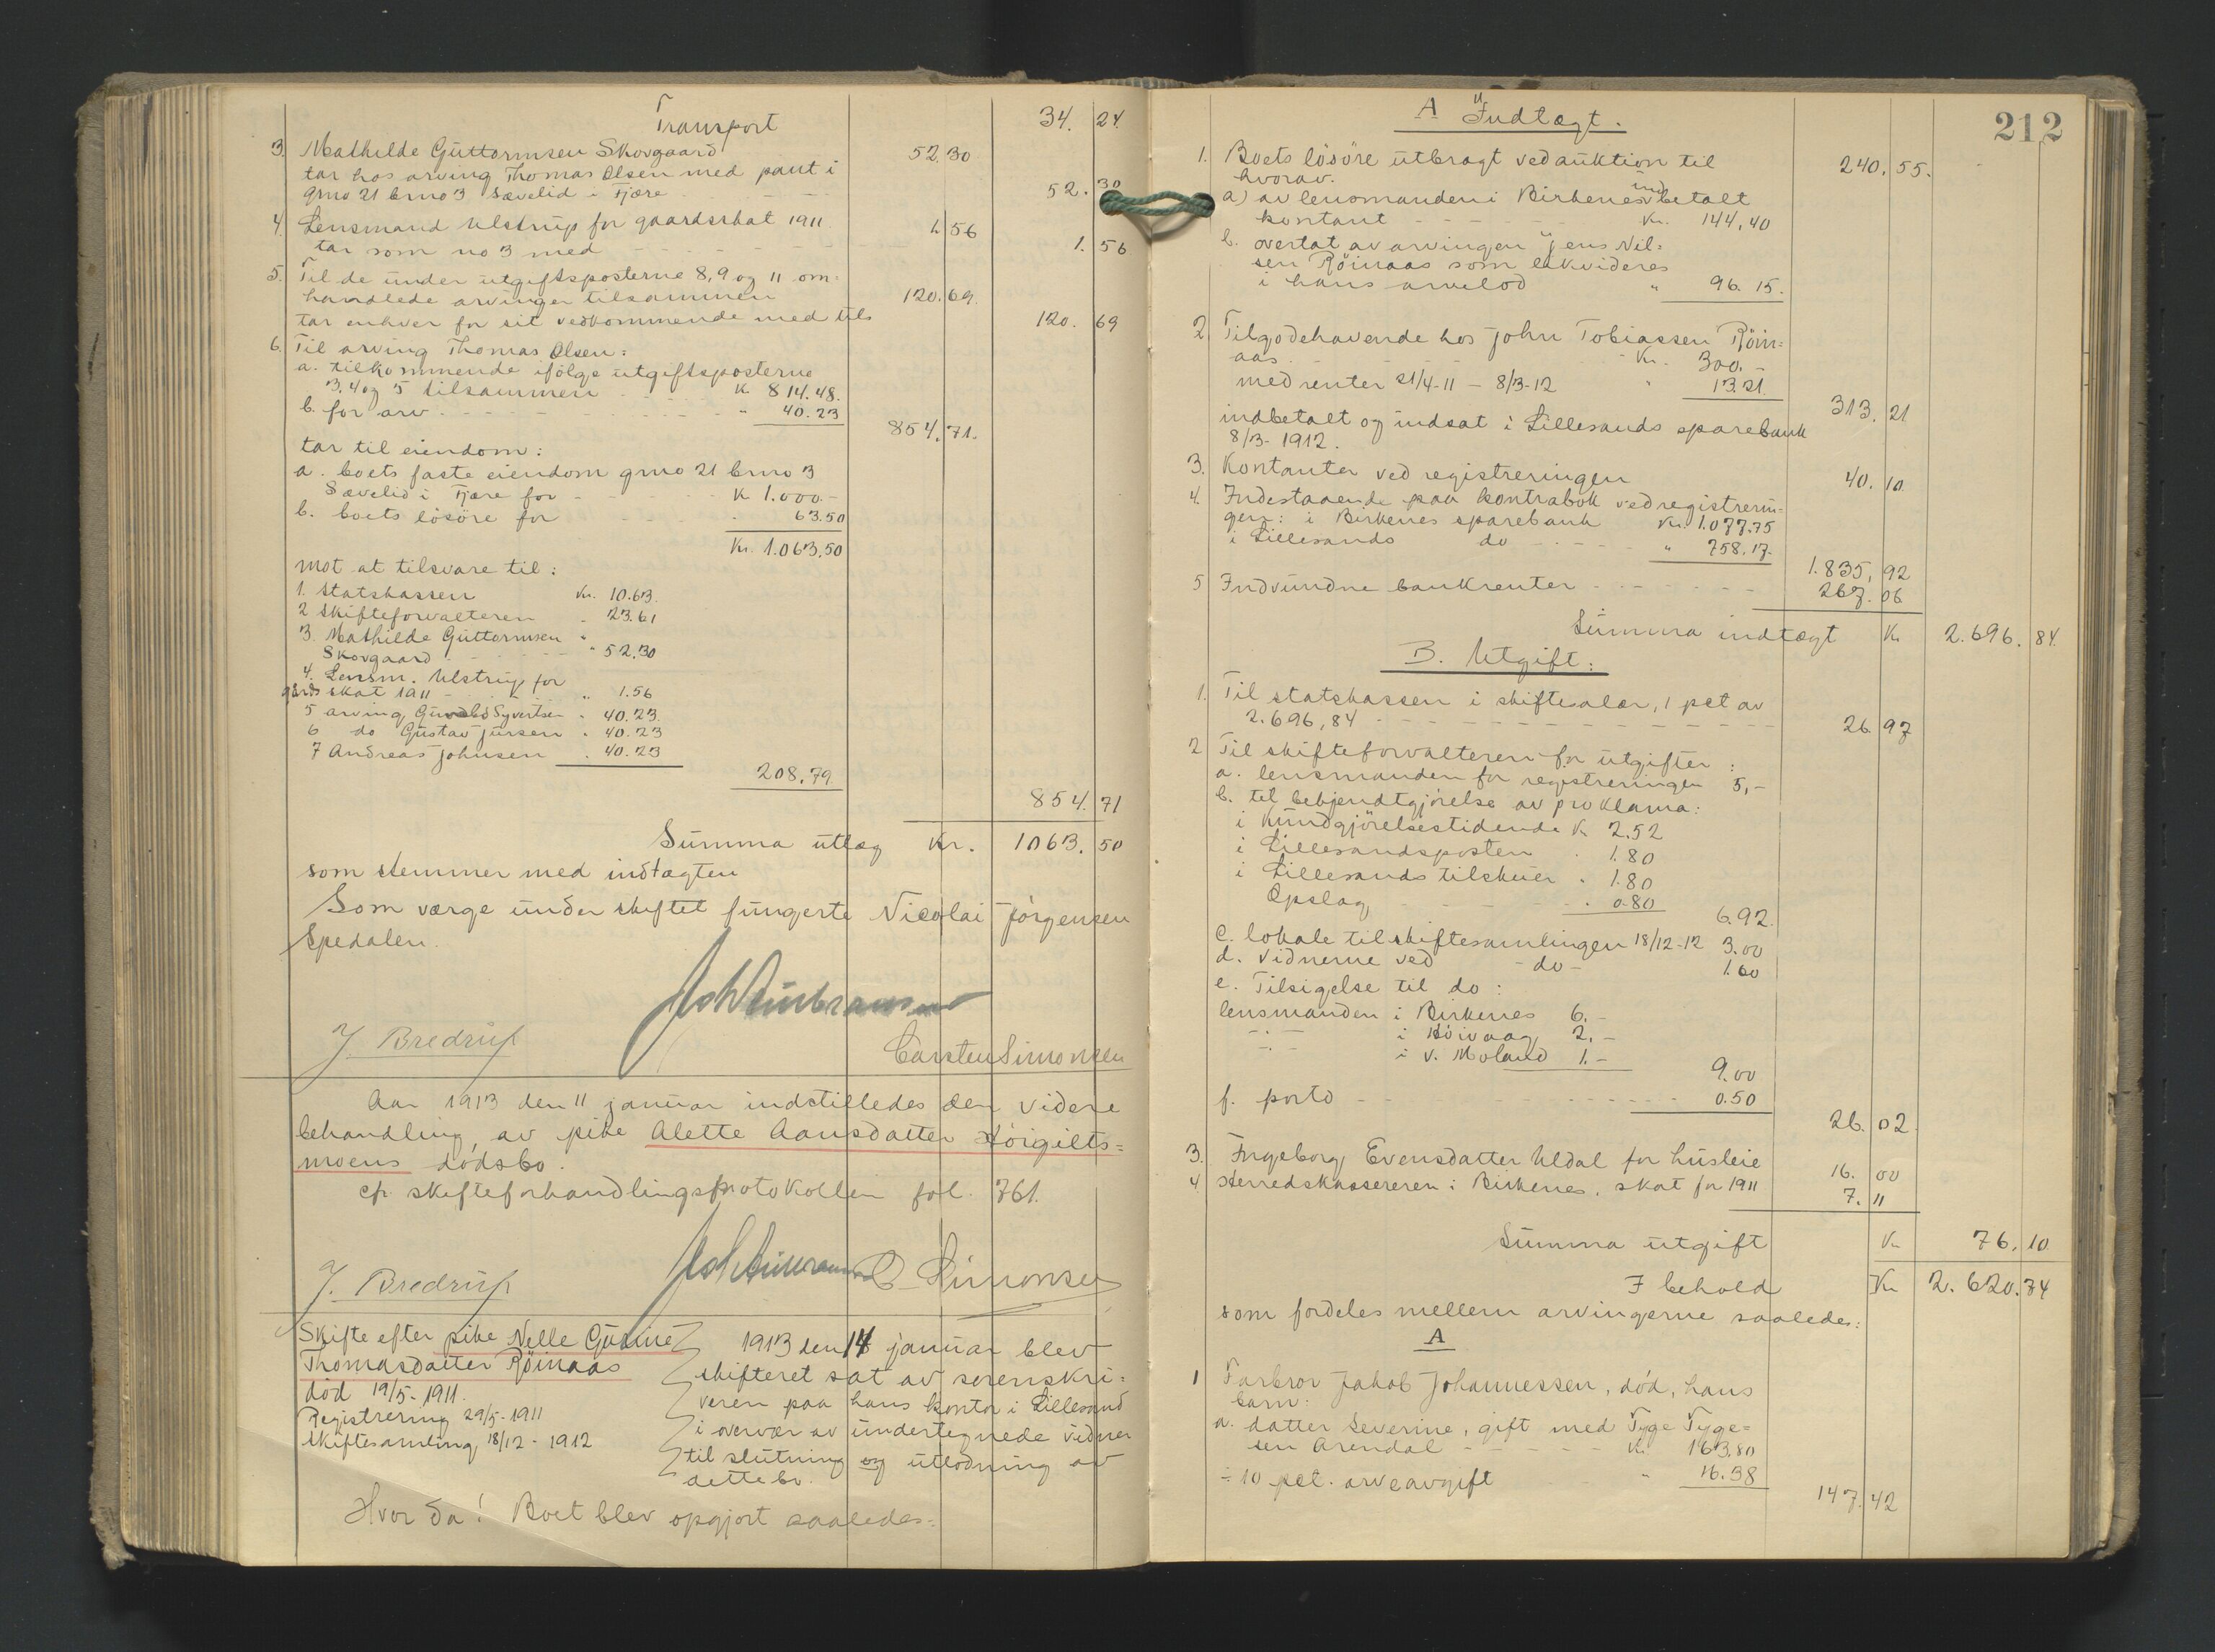 Transport 34. 24.
3. Mathilde Guttormsen Skovgaard 52.30
tar hos arving Thomas Olsen med pant i
gno 21 bno 3 Sævelid i Fjære - - - 52. 30
4. Lensmand Ulstrup for gaardsskat 1911. 1.56
tar som no 3 med - - - - - 1. 56
5. Til de under utgiftsposterne 8, 9 og 11 om-
handlede arvinger tilsammen 120.69.
tar enhver for sit vedkommende med tils 120. 69
6. Til arving Thomas Olsen:
a. tilkommende ifölge utgiftsposterne
3. 4 og 5 tilsammen K. 814.48.
b. for arv - - - - " 40.23
854.71.
tar til eiendom:
a. boets faste eiendom gno 21 bno 3
Sævelid i Fjære for - - - K 1.000.-
b. boets lösöre for - - " 63.50
Kr. 1.063.50
mot at tilsvare til:
1. Statskassen Kr. 10.63.
2 Skifteforvalteren " 23.61
3. Mathilde Guttormsen "
Skovgaard - - - " 52.30
4. Lensm. Ulstrup for
gårdsskat 1911 - - " 1.56
5 arving Gunvald Syvertsen " 40.23.
6 do Gustav Jürsen " 40.23
7 Andreas Johnsen " 40.23
208.79
854. 71
Summa utlæg Kr. 1063. 50
som stemmer med indtægten
Som værge under skiftet fungerte Nicolai Jörgensen
Spedalen.
J Bredrup
Carsten Simonsen
Aar 1913 den 11 januar indstilledes den videre
behandling, av pike Alette Aansdatter Höigilts=
moens dödsbo.
cfr. skifteforhandlingsprotokollen fol. 761.
J. Bredrup
C Simonsen
Skifte efter pike Nelle Gurine
Thomasdatter Röinaas
död 19/5-1911.
Registrering 29/5-1911
Skiftesamling 18/12-1912
1913 den 14 januar blev
skifteret sat av sorenskri-
veren paa hans kontor i Lillesand
i overvær av undertegnede vidner
til slutning og utlodning av
dette bo.
Hvor da! Boet blev opgjort saaledes:
212
A Indtægt.
1. Boets lösöre utbragt ved auktion til 240. 55.
hvorav.
a) av lensmanden i Birkenes indbetalt
kontant - - - - Kr. 144,40
b. overtat av arvingen Jens Nil-
sen Röinaas som likvideres
i hans arvelod " 96. 15.
2. Tilgodehavende hos John Tobiassen Röin=
aas. - - - Kr. 300.-
med renter 21/4-11 - 8/3-12 " 13.21.
313. 21
indbetalt og indsat i Lillesands sparebank
8/3-1912.
3. Kontanter ved registreringen 40. 10
4. Indestaaende paa kontrabok ved registrerin-
gen: i Birkenes sparebank Kr. 1.077.75
i Lillesands do - - - " 758.17.
1.835. 92
5 Indvundne bankrenter - - - 267. 06
Summa indtægt Kr 2.696. 84.
B. Utgift:
1. Til statskassen i skiftesalær, 1 pct av
2.696,84 - - - - 26. 97
2 Til skifteforvalteren for utgifter:
a. lensmanden for registreringen 5,-
b. til bekjendtgjörelse av proklama:
i Kundgjörelsestidende K 2.52
i Lillesandsposten . 1.80
i Lillesands tilskuer . 1.80
Opslag - - - . 0.80
6.92.
c. lokale til skiftesamlingen 18/12-12 3.00
d. Vidnerne ved - do - 1.60
e. Tilsigelse til do:
lensmanden i Birkenes 6.-
-"- i Höivaag 2.-
-"- i V. Moland 1.-
9.00
f. porto - - - - 0.50
26. 02.
3. Ingeborg Evensdatter Uldal for husleie 16. 00
4. Herredskassereren i Birkenes. skat for 1911 7. 11
Summa utgift Kr 76. 10
I behold Kr 2.620.74
som fordeles mellem arvingerne saaledes:
A
1 Farbror Jakob Johannessen, död, hans
barn:
a. datter Severine, gift med Tyge Tyge=
sen Arendal - - - Kr. 163.80
÷ 10 pct. arveavgift " 16.38
147. 42